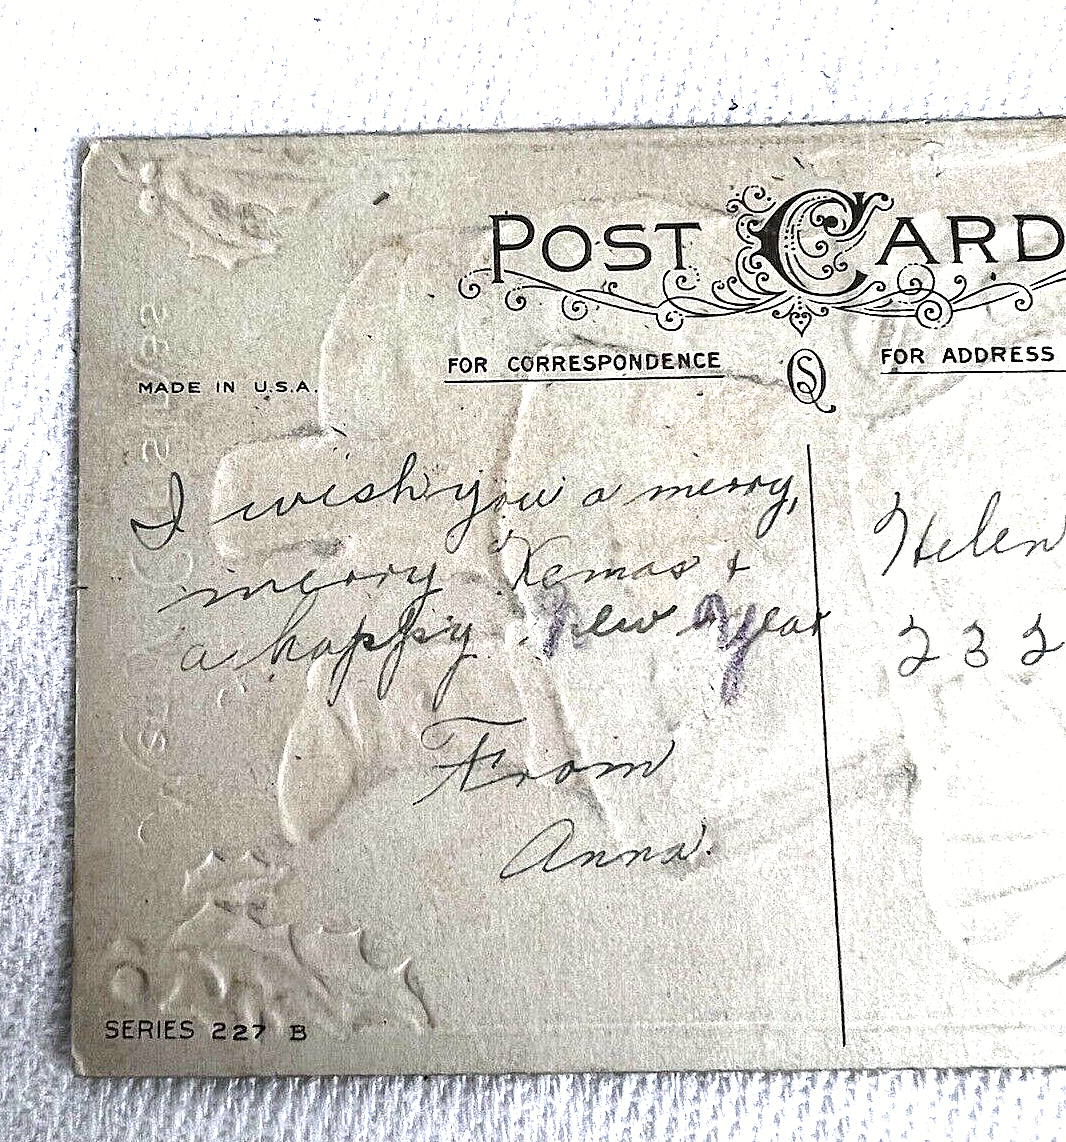 POST CARD
FOR CORRESPONDENCE
FOR ADDRESS
MADE IN U.S.A.
I wish you a merry,
merry Xmas +
a happy New Year
From
Anna.
Helen
232
SERIES 227 B